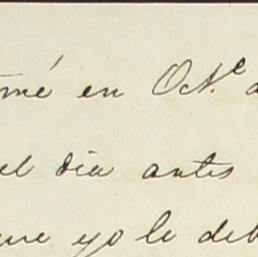 mé en ONe
el dia antes
que yo le deb